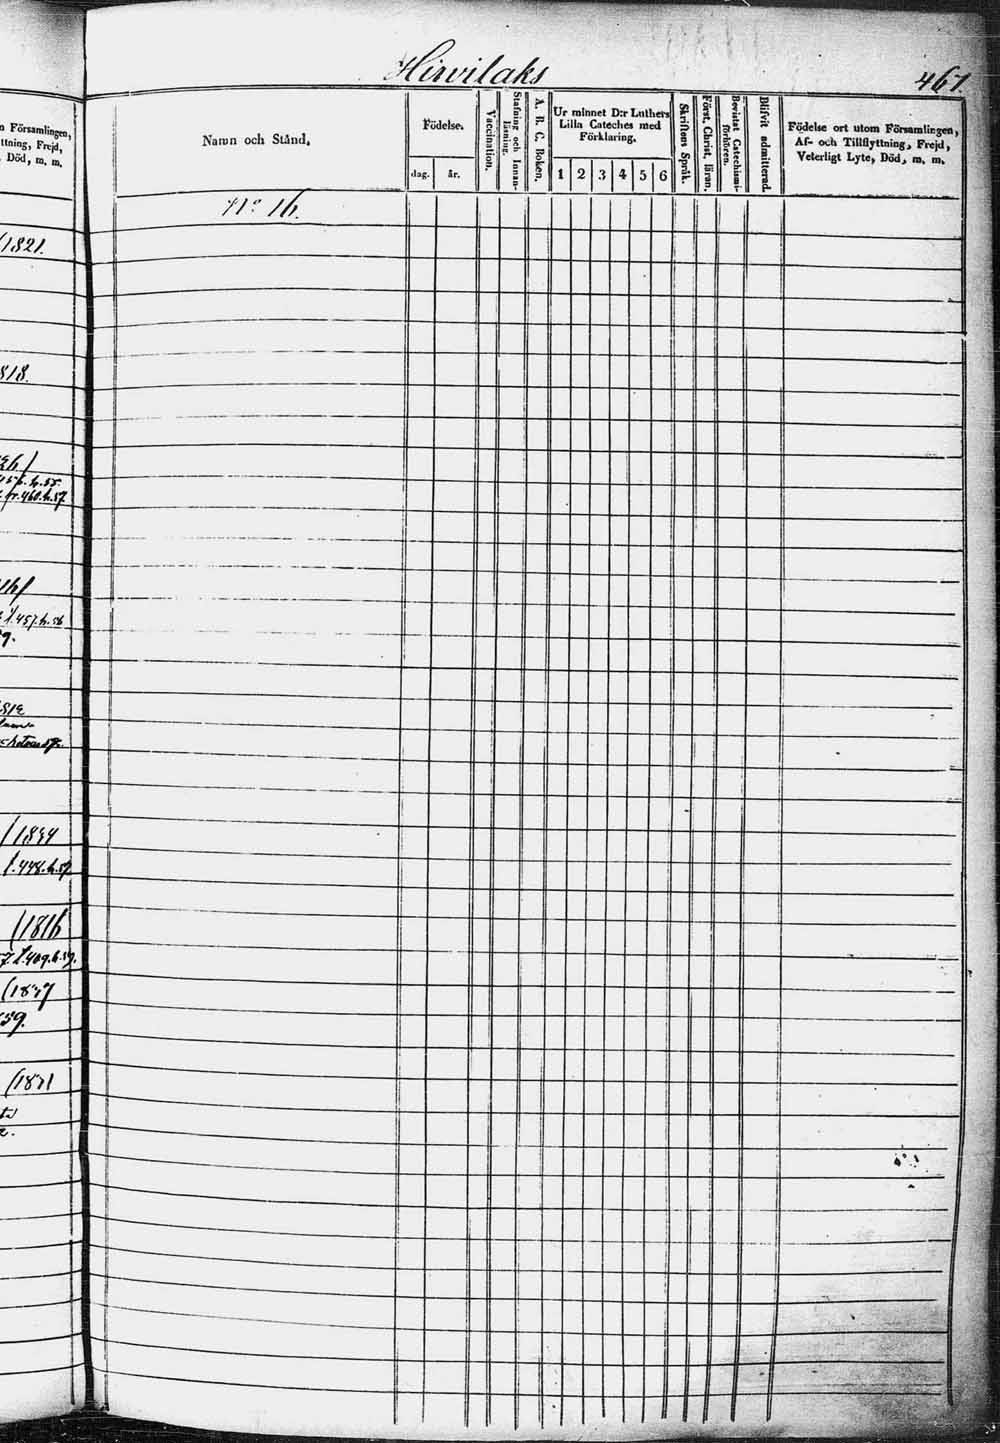 Hirvilaks
461
n Församlingen,
ttning, Frejd,
Död, m. m.
Namn och Stånd.
Födelse.
dag. år.
Vaccination.
Stafning och Innan-
läsning.
A. B. C. Boken.
Ur minnet D:r Luthers
Lilla Cateches med
Förklaring.
1 2 3 4 5 6
Skriftens Språk.
Först. Christ. läran.
Bevistat Catechismi-
förhören.
Blifvit admitterad.
Födelse ort utom Församlingen,
Af- och Tillflyttning, Frejd,
Veterligt Lyte, Död, m. m.
N:o 16.
(1821.
818.
fr. 460. h. 57
f. 457. h. 56
(1834
f. 448. h. 57
(1816
7 f. 409. h. 59.
(1837
59.
(1831